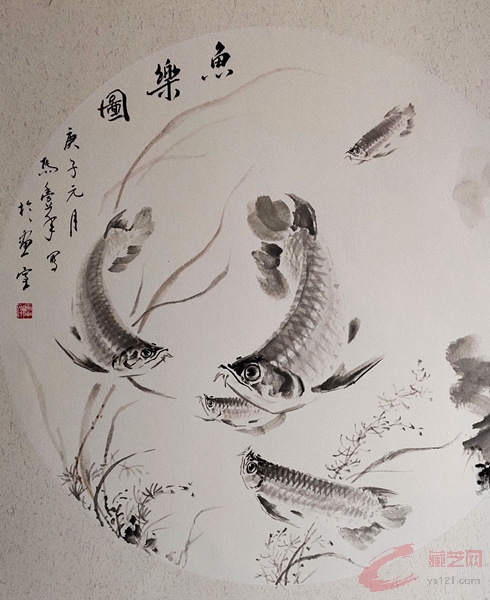 魚樂圖
庚子元月
馬 軍寫
於画室
藏艺网
ys121.com